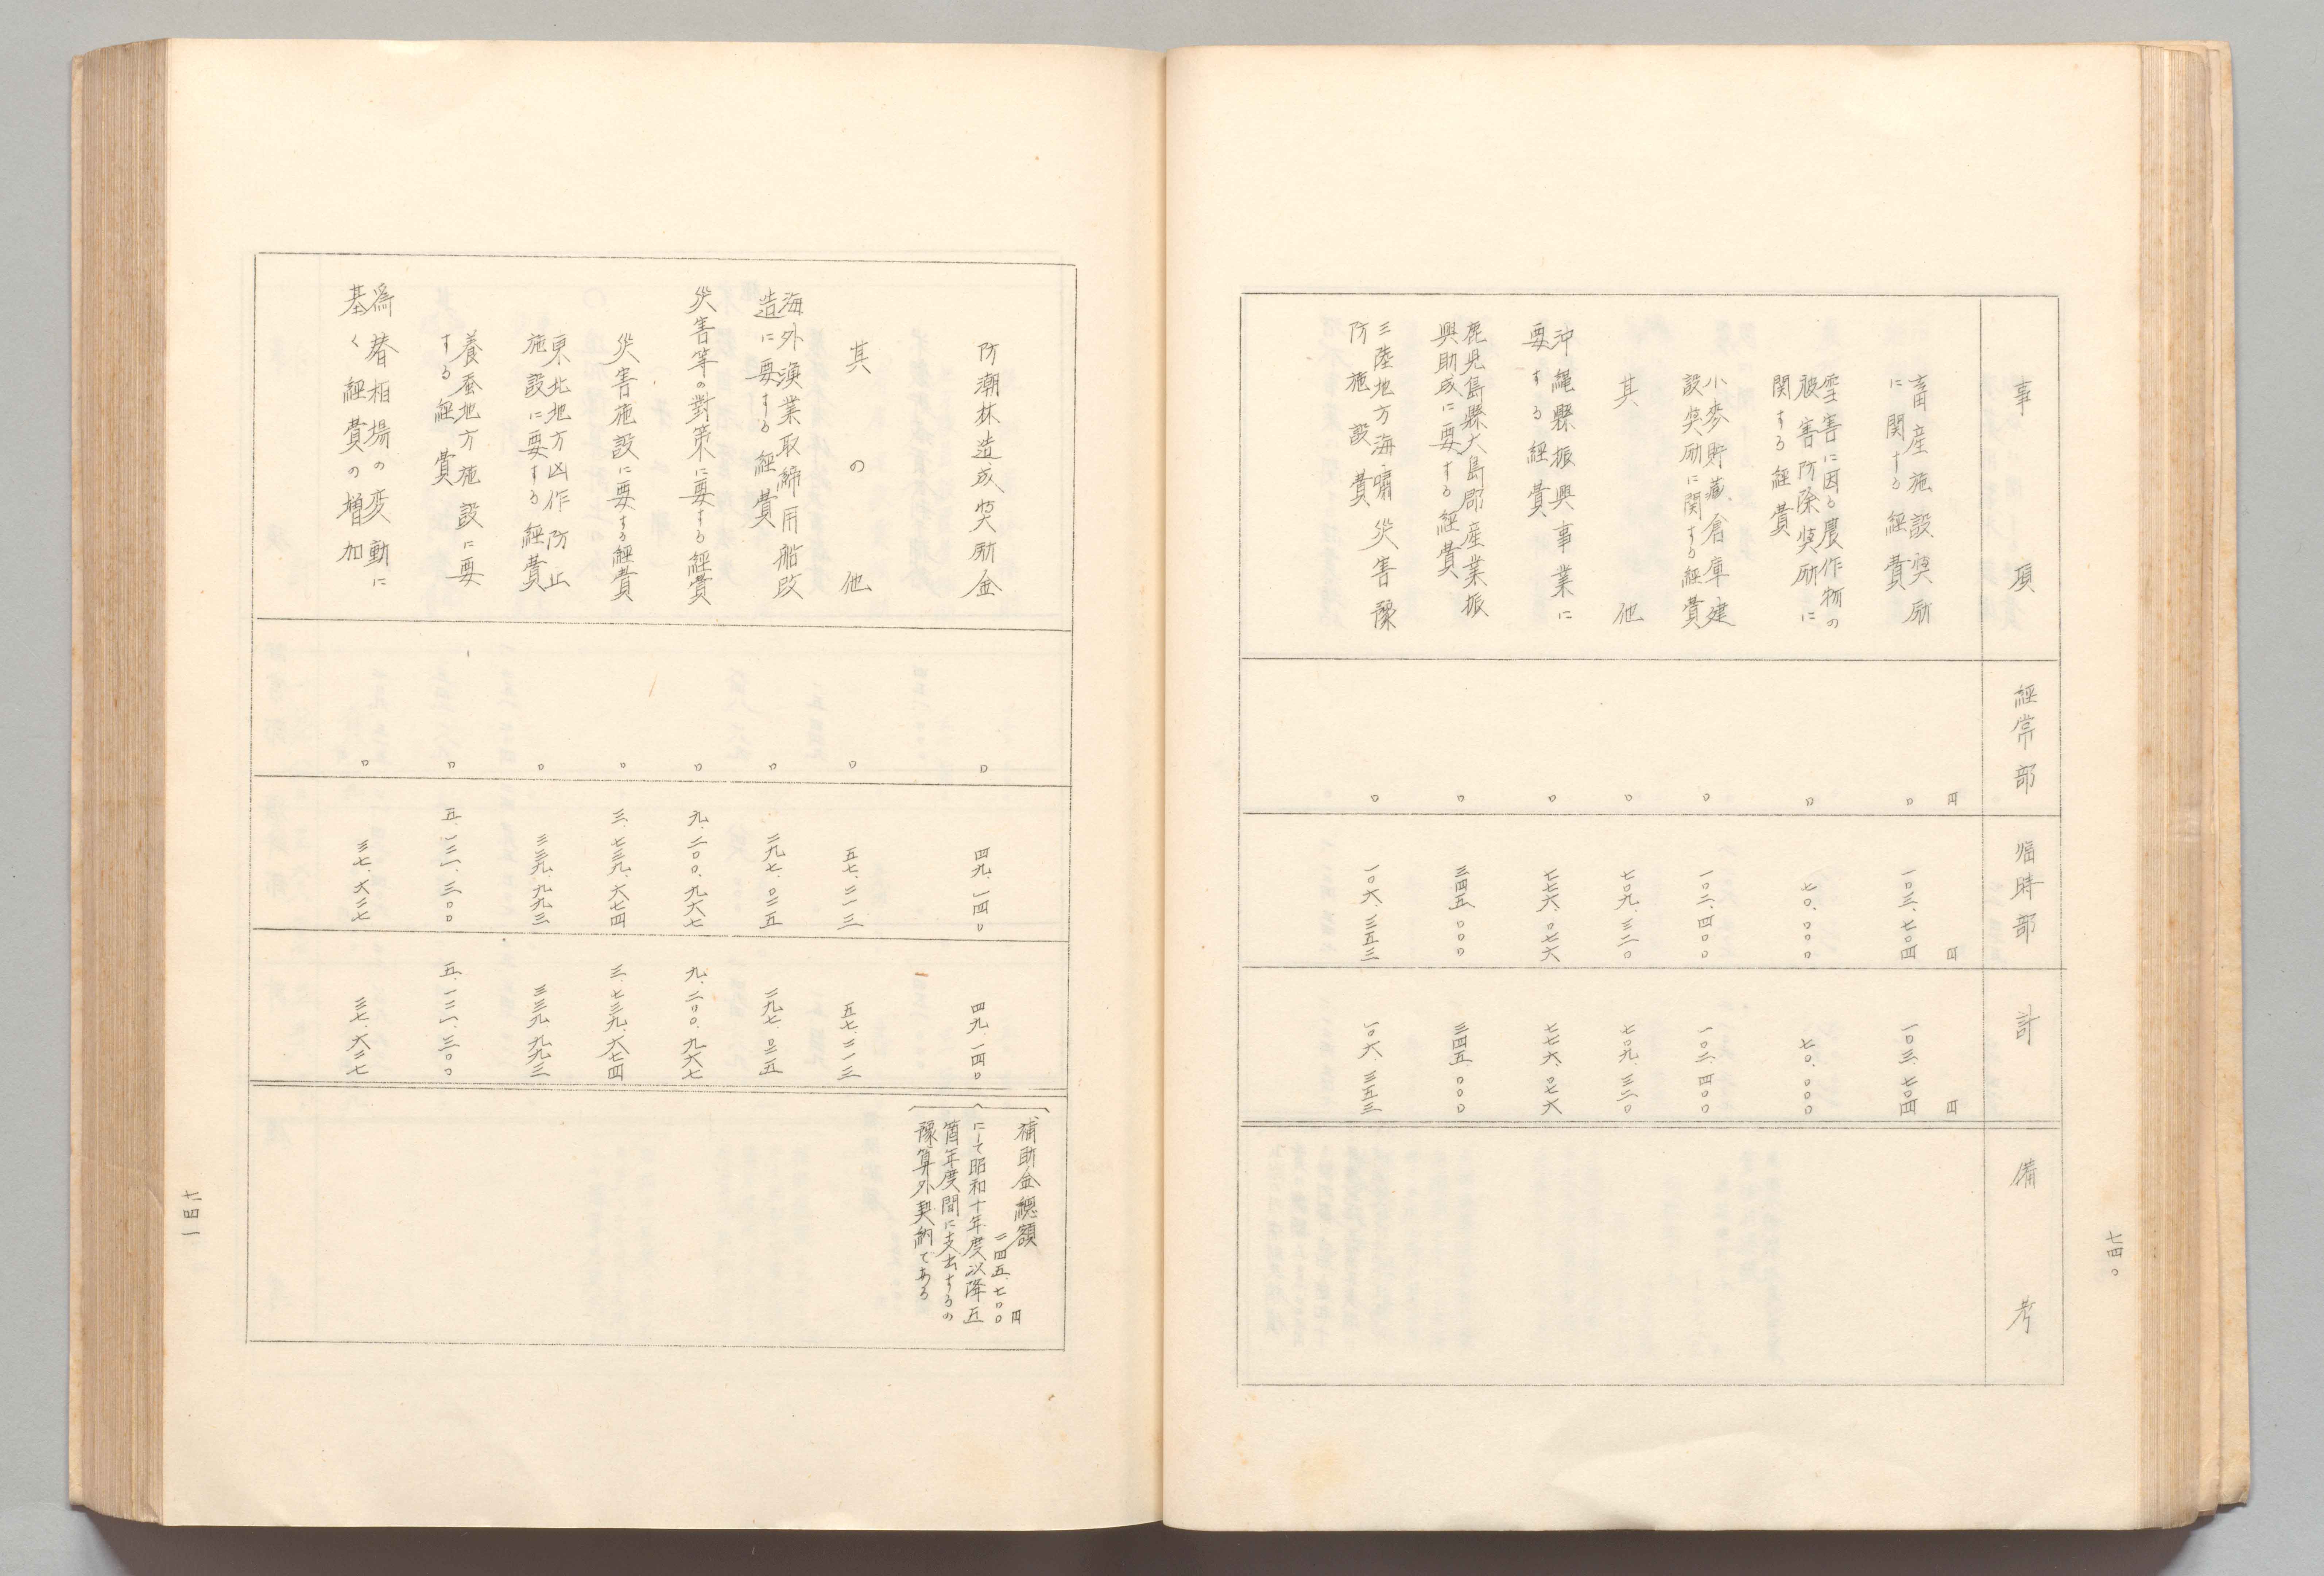 七四〇
事項
経常部
臨時部
計
備考
円
円
円
畜産施設奨励
に関する経費
〇
一〇三、七〇四
一〇三、七〇四
雪害に因る農作物の
被害防除奨励に
関する経費
〇
七〇、〇〇〇
七〇、〇〇〇
小麥貯藏倉庫建
設奨励に関する経費
〇
一〇二、四〇〇
一〇二、四〇〇
其他
〇
七〇九、三二〇
七〇九、三二〇
沖縄縣振興事業に
要する経費
〇
七七六、〇七六
七七六、〇七六
鹿児島縣大島郡産業振
興助成に要する経費
〇
三四五、〇〇〇
三四五、〇〇〇
三陸地方海嘯災害豫
防施設費
〇
一〇六、三五三
一〇六、三五三
防潮林造成奨励金
〇
四九、一四〇
四九、一四〇
補助金總額
円
二四五、七〇〇
にして昭和十年度以降五
箇年度間に支出するの
豫算外契約である
其の他
〇
五七、二一三
五七、二一三
海外漁業取締用船改
造に要する経費
〇
二九七、〇二五
二九七、〇二五
災害等の對策に要する経費
〇
九、二〇〇、九六七
九、二〇〇、九六七
災害施設に要する経費
〇
三、七三九、六七四
三、七三九、六七四
東北地方凶作防止
施設に要する経費
〇
三三九、九九三
三三九、九九三
養蚕地方施設に要
する経費
〇
五、一二一、三〇〇
五、一二一、三〇〇
為替相場の変動に
基く経費の増加
〇
三七、六二七
三七、六二七
七四一